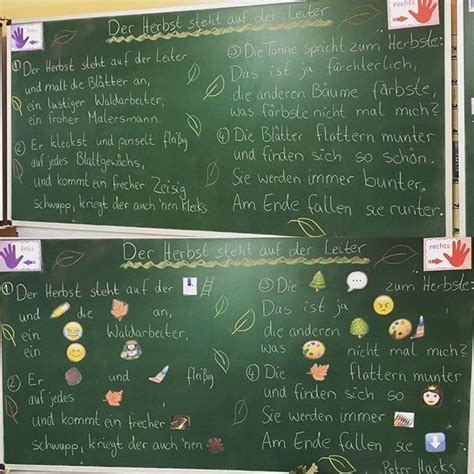 links
Der Herbst steht auf der Leiter
rechts
① Der Herbst steht auf der Leiter
und malt die Blätter an,
ein lustiger Waldarbeiter,
ein froher Malersmann.
② Er kleckst und pinselt fleißig
auf jedes Blattgewächs,
und kommt ein frecher Zeisig
schwupp, kriegt der auch 'nen Klecks.
③ Die Tanne spricht zum Herbste:
Das ist ja fürchterlich,
die anderen Bäume färbste,
was färbste nicht mal mich?
④ Die Blätter flattern munter
und finden sich so schön.
Sie werden immer bunter.
Am Ende fallen sie runter.
links
Der Herbst steht auf der Leiter
rechts
① Der Herbst steht auf der
und die an,
ein Waldarbeiter,
ein
② Er und fleißig
auf jedes
und kommt ein frecher
schwupp, kriegt der auch 'nen
③ Die zum Herbste:
Das ist ja
die anderen
was nicht mal mich?
④ Die flattern munter
und finden sich so
Sie werden immer
Am Ende fallen sie
Peter Hacks